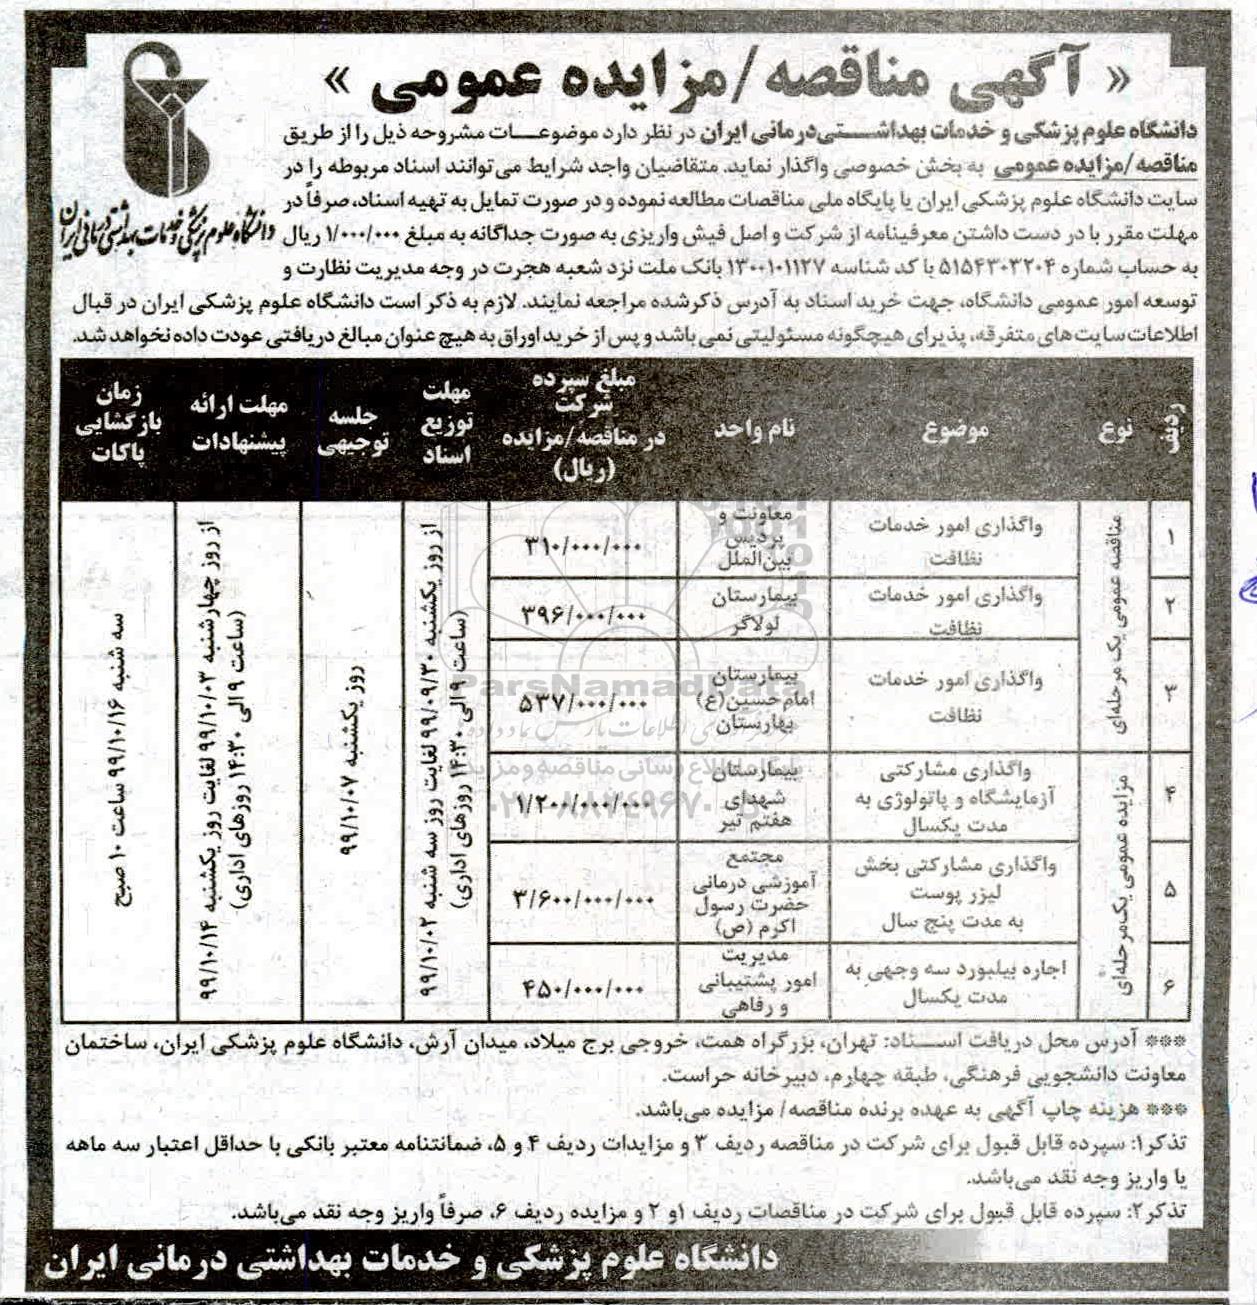 « آگهی مناقصه/مزایده عمومی »
دانشگاه علوم پزشکی و خدمات بهداشتی درمانی ایران
دانشگاه علوم پزشکی و خدمات بهداشتی‌درمانی ایران در نظر دارد موضوعات مشروحه ذیل را از طریق
مناقصه/مزایده عمومی به بخش خصوصی واگذار نماید. متقاضیان واجد شرایط می‌توانند اسناد مربوطه را در
سایت دانشگاه علوم پزشکی ایران یا پایگاه ملی مناقصات مطالعه نموده و در صورت تمایل به تهیه اسناد، صرفاً در
مهلت مقرر با در دست داشتن معرفینامه از شرکت و اصل فیش واریزی به صورت جداگانه به مبلغ ۱/۰۰۰/۰۰۰ ریال
به حساب شماره ۵۱۵۴۳۰۳۲۰۴ با کد شناسه ۱۳۰۰۱۰۱۱۲۷ بانک ملت نزد شعبه هجرت در وجه مدیریت نظارت و
توسعه امور عمومی دانشگاه، جهت خرید اسناد به آدرس ذکرشده مراجعه نمایند. لازم به ذکر است دانشگاه علوم پزشکی ایران در قبال
اطلاعات سایت های متفرقه، پذیرای هیچگونه مسئولیتی نمی باشد و پس از خرید اوراق به هیچ عنوان مبالغ دریافتی عودت داده نخواهد شد.
ردیف
نوع
موضوع
نام واحد
مبلغ سپرده
شرکت
در مناقصه/مزایده
(ریال)
مهلت
توزیع
اسناد
جلسه
توجیهی
مهلت ارائه
پیشنهادات
زمان
بازگشایی
پاکات
۱
مناقصه عمومی یک مرحله‌ای
واگذاری امور خدمات
نظافت
معاونت و
پردیس
بین‌الملل
۳۱۰/۰۰۰/۰۰۰
از روز یکشنبه ۹۹/۰۹/۳۰ لغایت روز سه شنبه ۹۹/۱۰/۰۲
(ساعت ۹ الی ۱۴:۳۰ روزهای اداری)
روز یکشنبه ۹۹/۱۰/۰۷
از روز چهارشنبه ۹۹/۱۰/۰۳ لغایت روز یکشنبه ۹۹/۱۰/۱۴
(ساعت ۹ الی ۱۴:۳۰ روزهای اداری)
سه شنبه ۹۹/۱۰/۱۶ ساعت ۱۰ صبح
۲
واگذاری امور خدمات
نظافت
بیمارستان
لولاگر
۳۹۶/۰۰۰/۰۰۰
۳
واگذاری امور خدمات
نظافت
بیمارستان
امام‌حسین(ع)
بهارستان
۵۳۷/۰۰۰/۰۰۰
۴
مزایده عمومی یک‌مرحله‌ای
واگذاری مشارکتی
آزمایشگاه و پاتولوژی به
مدت یکسال
بیمارستان
شهدای
هفتم تیر
۱/۲۰۰/۰۰۰/۰۰۰
۵
واگذاری مشارکتی بخش
لیزر پوست
به مدت پنج سال
مجتمع
آموزشی درمانی
حضرت رسول
اکرم (ص)
۳/۶۰۰/۰۰۰/۰۰۰
۶
اجاره بیلبورد سه وجهی به
مدت یکسال
مدیریت
امور پشتیبانی
و رفاهی
۴۵۰/۰۰۰/۰۰۰
ParsNamadData
*** آدرس محل دریافت اسناد: تهران، بزرگراه همت، خروجی برج میلاد، میدان آرش، دانشگاه علوم پزشکی ایران، ساختمان
معاونت دانشجویی فرهنگی، طبقه چهارم، دبیرخانه حراست.
*** هزینه چاپ آگهی به عهده برنده مناقصه/ مزایده می‌باشد.
تذکر۱: سپرده قابل قبول برای شرکت در مناقصه ردیف ۳ و مزایدات ردیف ۴ و ۵، ضمانتنامه معتبر بانکی با حداقل اعتبار سه ماهه
یا واریز وجه نقد می‌باشد.
تذکر۲: سپرده قابل قبول برای شرکت در مناقصات ردیف ۱و ۲ و مزایده ردیف ۶، صرفاً واریز وجه نقد می‌باشد.
دانشگاه علوم پزشکی و خدمات بهداشتی درمانی ایران